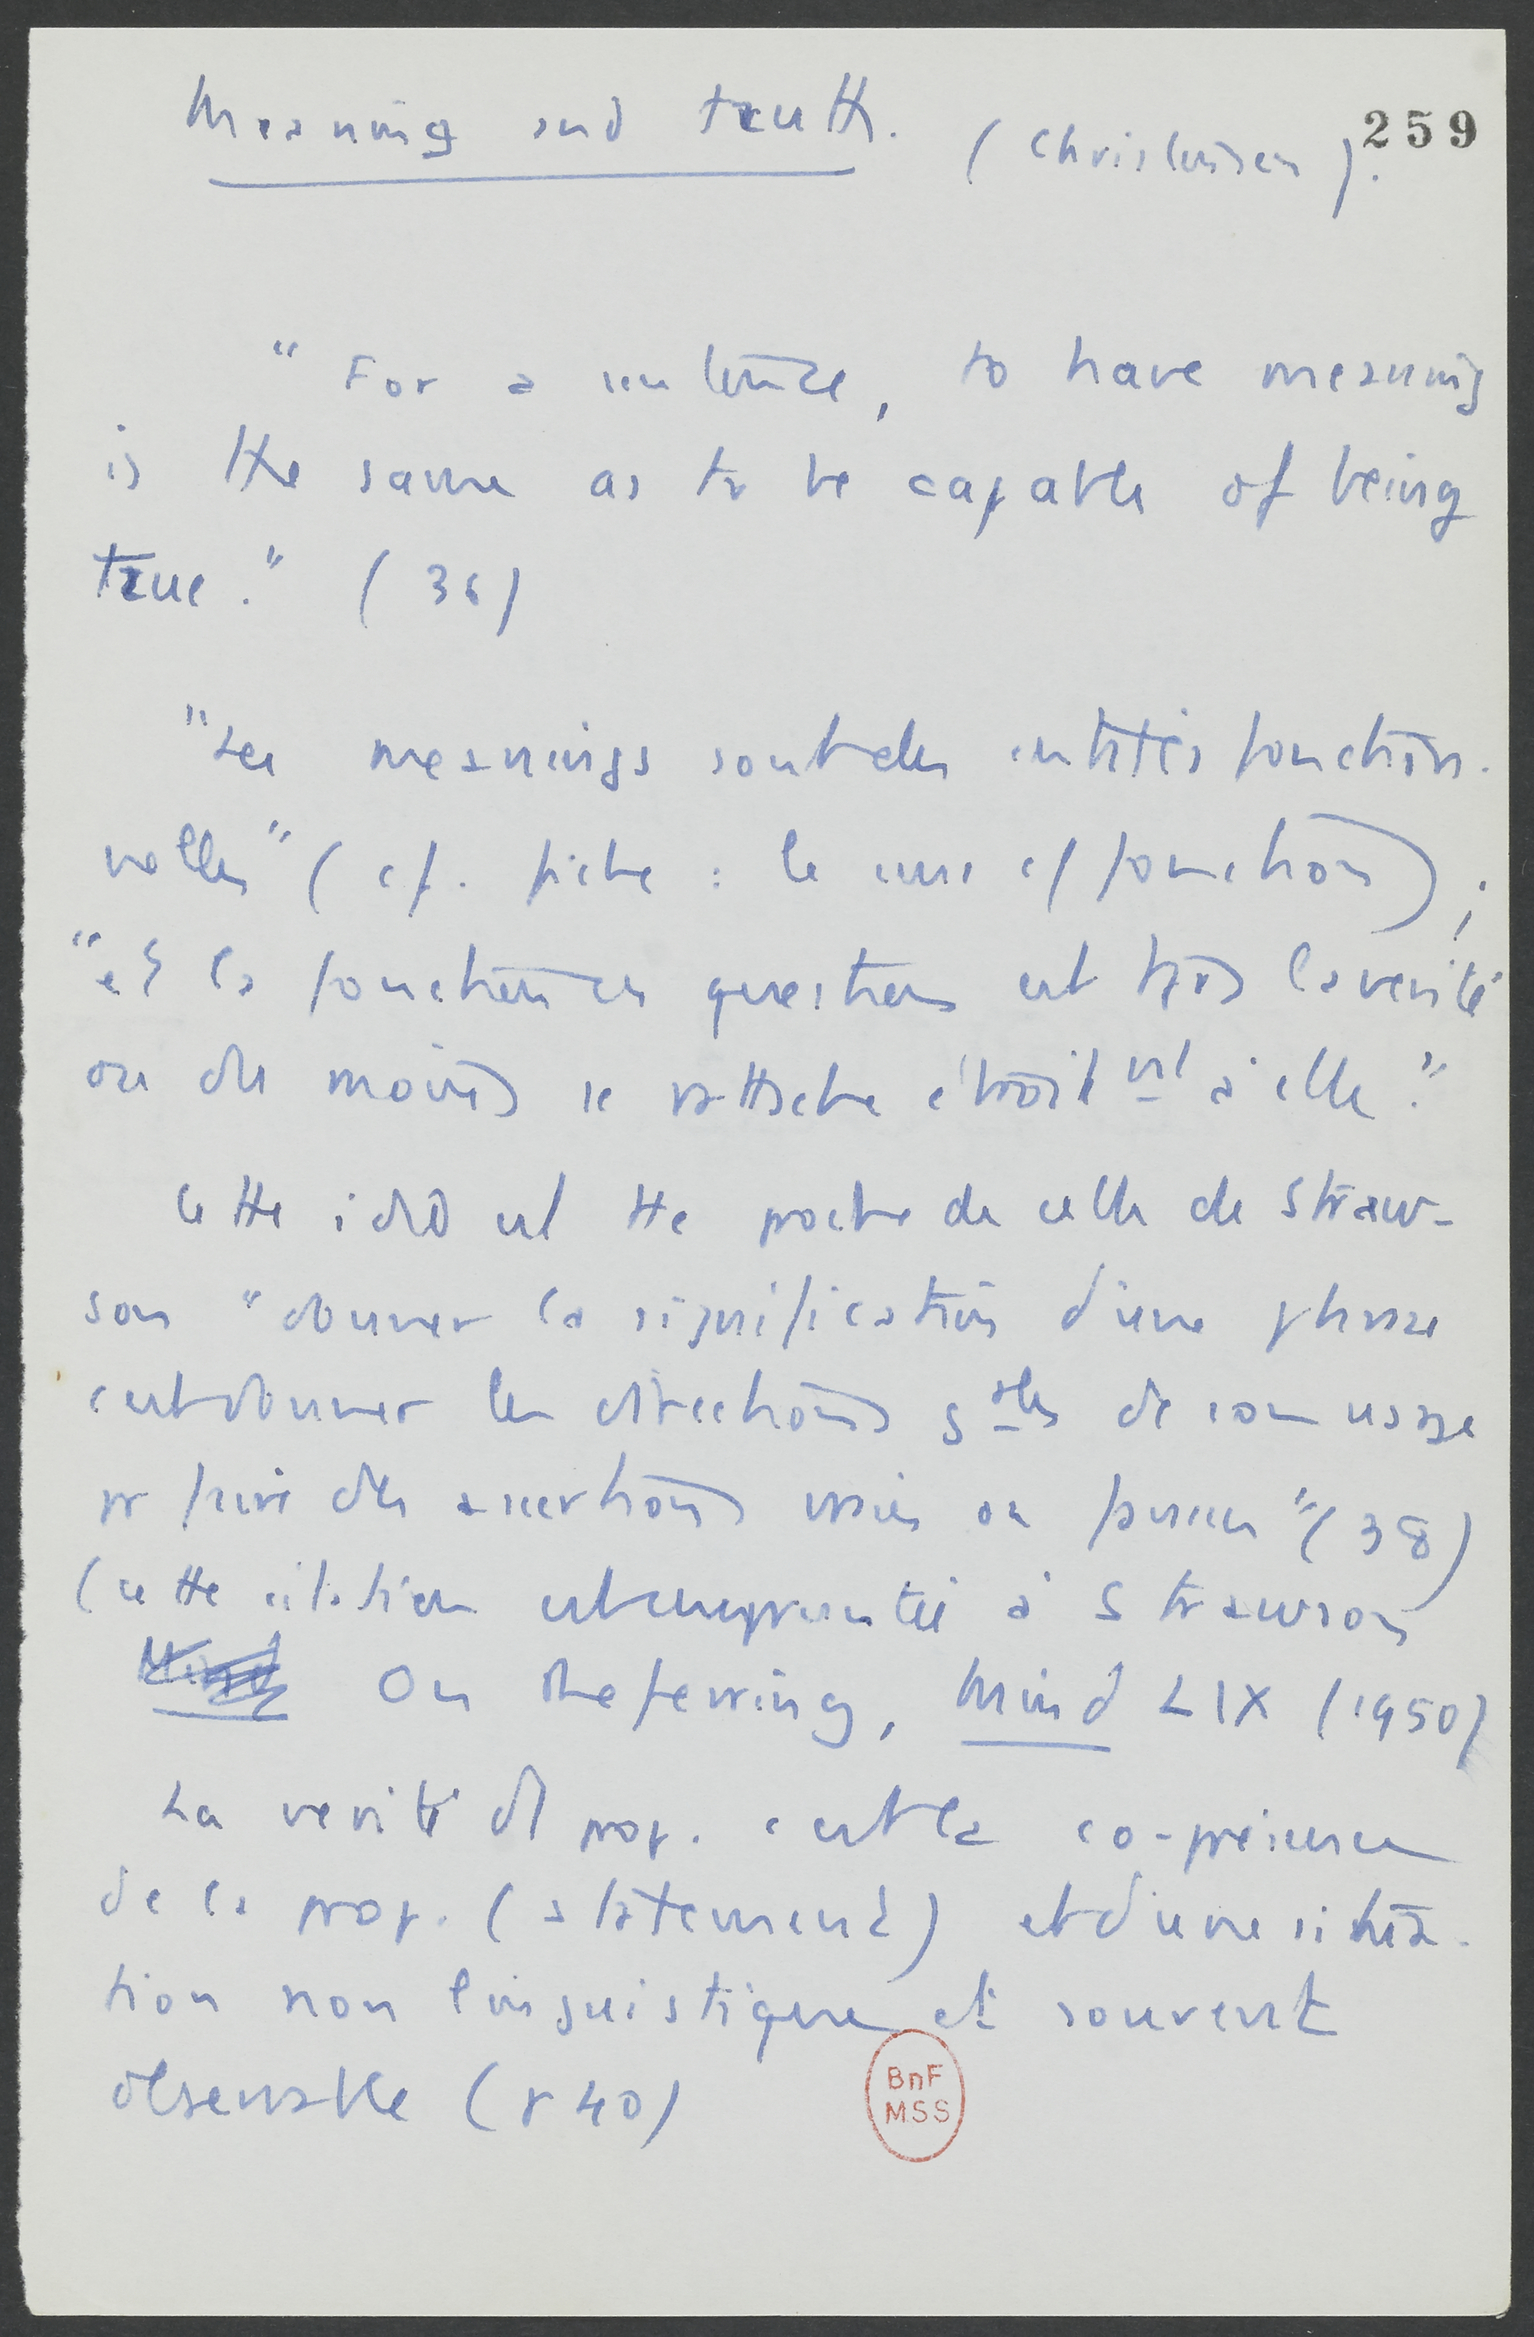 Meaning and truth. (Christensen). 259
" For a sentence, to have meaning
is the same as to be capable of being
true." (36)
"Les meanings sont des entités fonction-
nelles" (cf. fiche : le sens et fonction) ;
"et la fonction en question est tjrs la vérité
ou du moins se rattache étroitmt à elle."
Cette idée est tte proche de celle de Straw-
son "donner la signification d'une phrase
c'est donner les directions gales de son usage
pr faire des assertions vraies ou fausses" (38)
(cette citation est empruntée à Strawson
Mind On Referring, Mind LIX (1950)
La vérité d prop. c'est la co-présence
de la prop. (statement) et d'une situa-
tion non linguistique et souvent
observable (p 40)
BnF
MSS